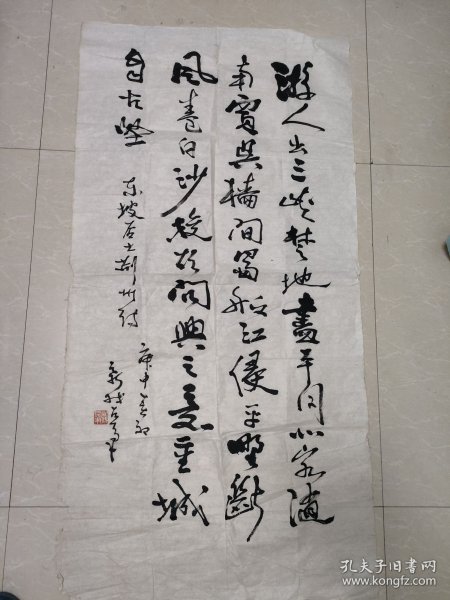 游人出三峡楚地尽平川北客随
南贾吴樯间蜀船江侵平野断
风卷白沙旋欲问兴亡意重城
自古坚 东坡居士荆州诗
庚申
孔夫子旧书网
www.kongfz.com